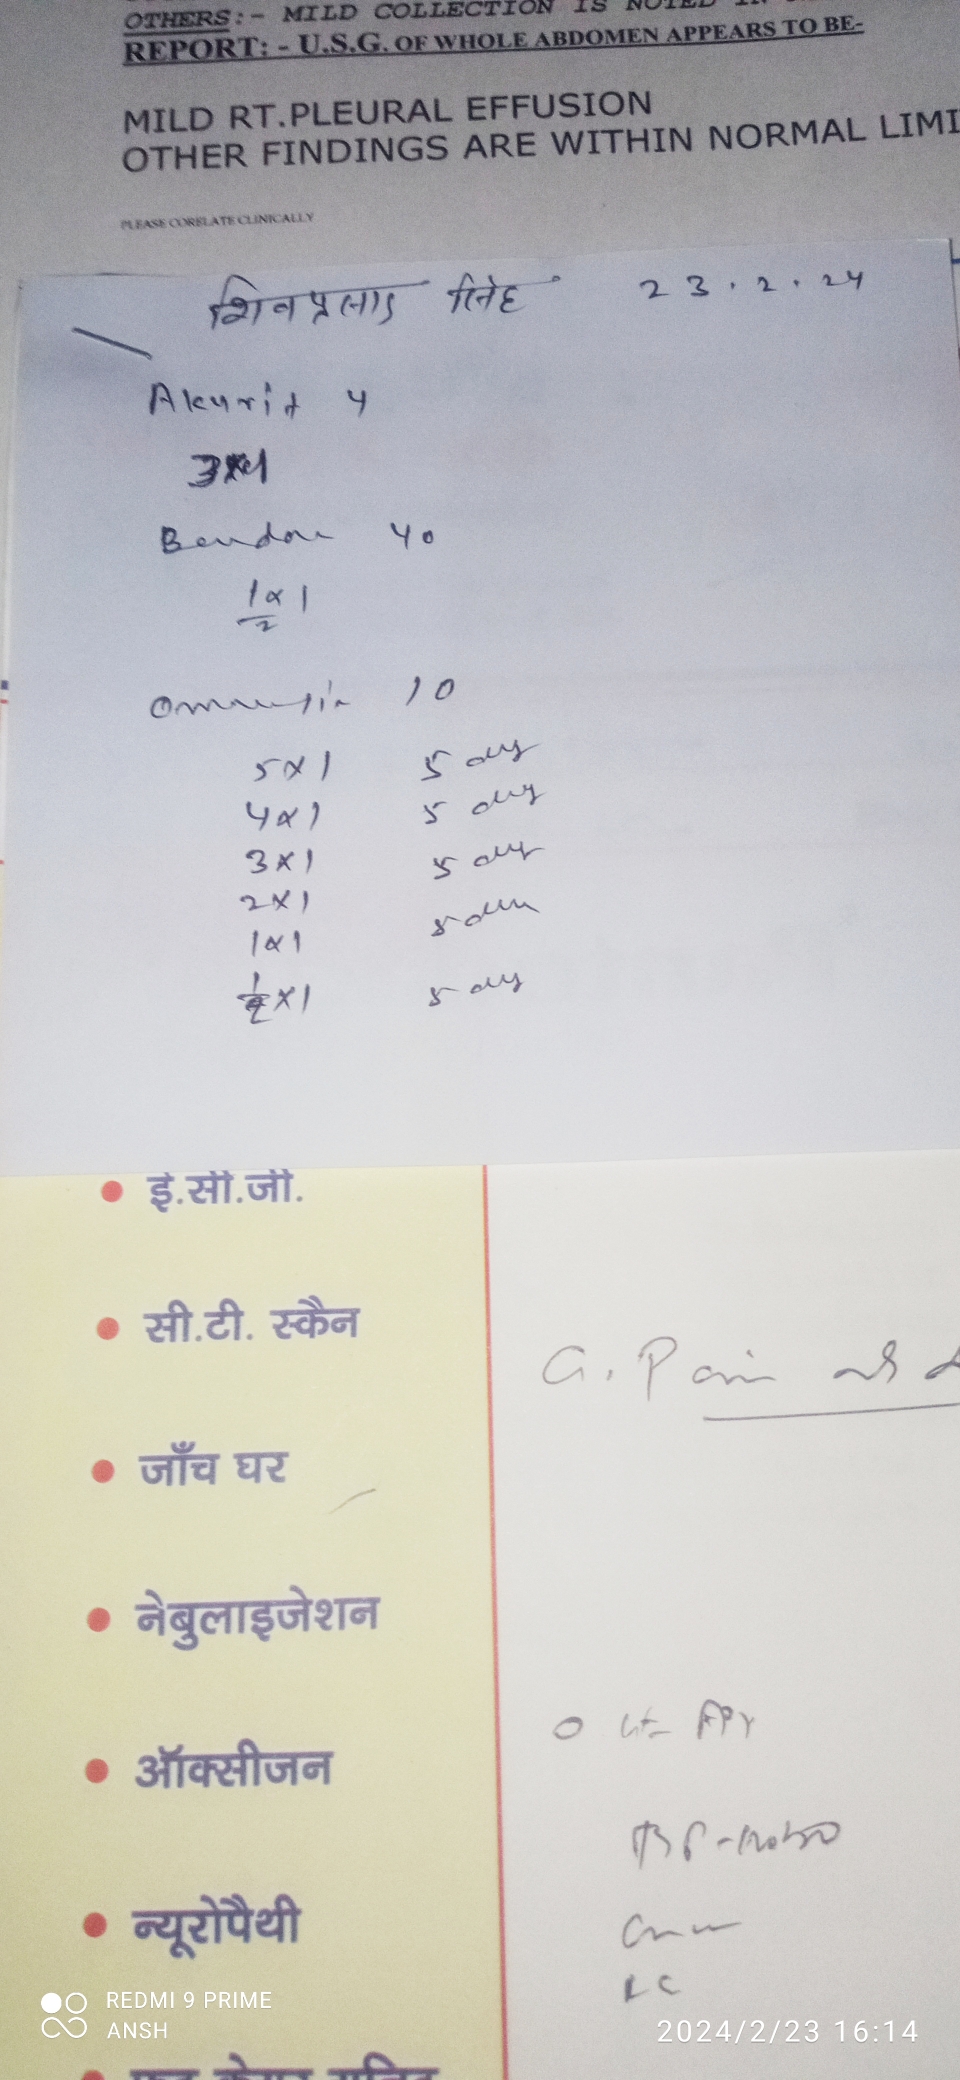 OTHERS:- MILD COLLECTION IS NOTED IN
REPORT: - U.S.G. OF WHOLE ABDOMEN APPEARS TO BE-
MILD RT.PLEURAL EFFUSION
OTHER FINDINGS ARE WITHIN NORMAL LIMI
PLEASE CORELATE CLINICALLY
शिवप्रसाद सिंह 23.2.24
Akurit 4
3x1
40
1/2 x 1
10
5x1 5 day
4x1 5 day
3x1 5 day
2x1
1x1 5 day
1/2 x1 5 day
ई.सी.जी.
सी.टी. स्कैन
G. Pain
जाँच घर
नेबुलाइजेशन
ऑक्सीजन
न्यूरोपैथी
REDMI 9 PRIME
ANSH
2024/2/23 16:14